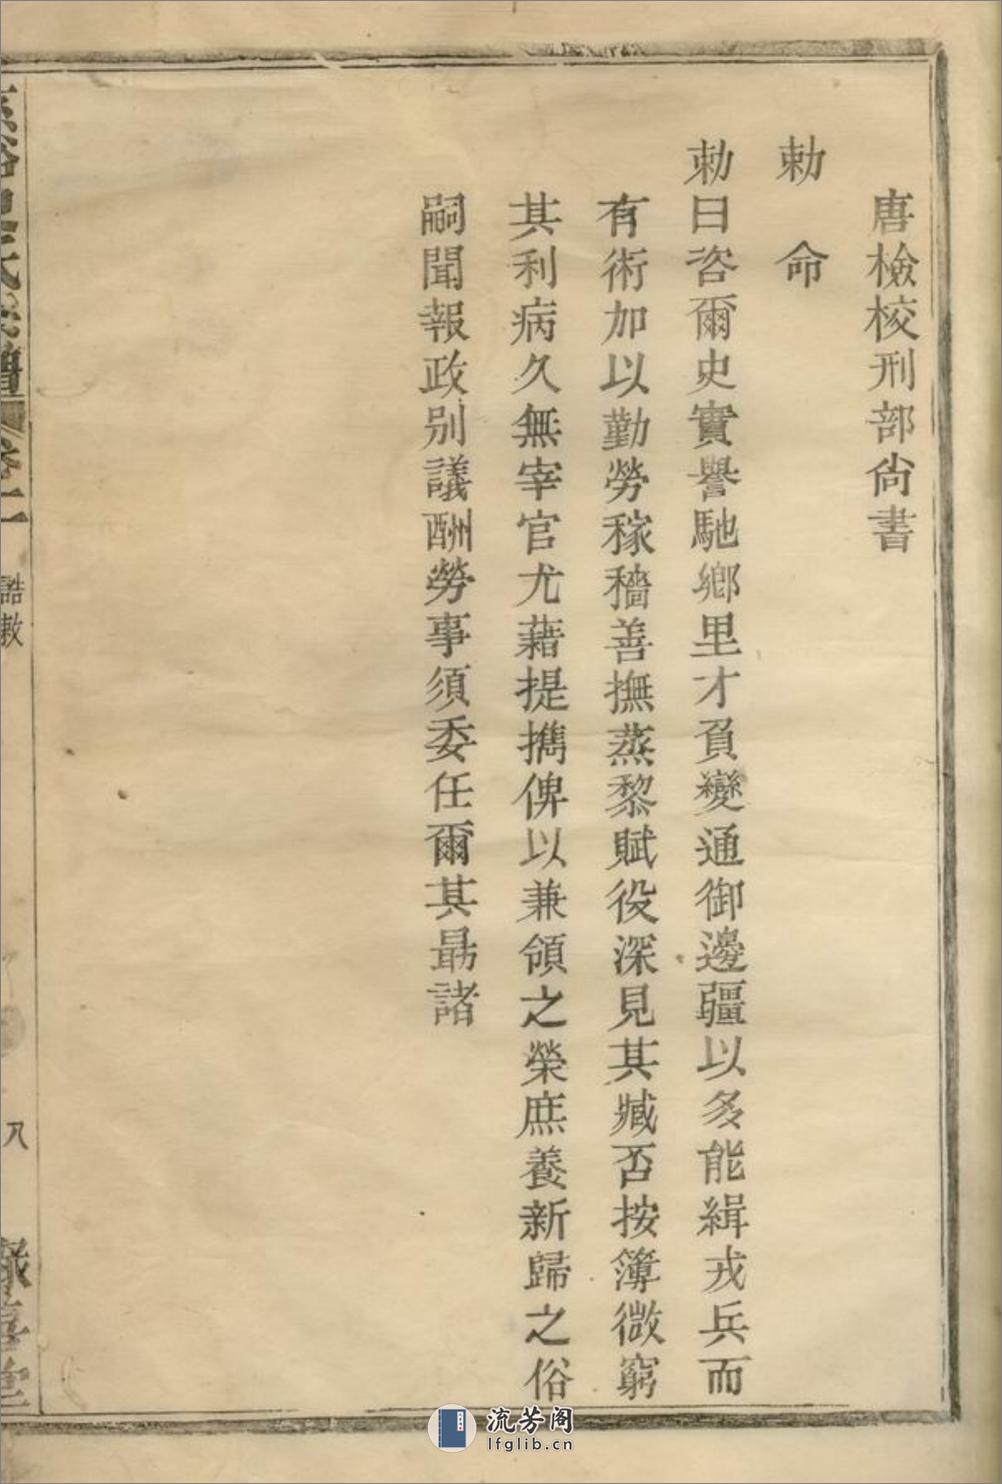 唐檢校刑部尙書
勅命
勅曰咨爾史實譽馳鄉里才負變通御邊疆以多能緝戎兵而
有術加以勤勞稼穡善撫蒸黎賦役深見其臧否按簿微窮
其利病久無宰官尤藉提擕俾以兼領之榮庶養新歸之俗
嗣聞報政别議酬勞事須委任爾其最諸
譜 卷一
誥敕
八
流芳阁
lfglib.cn